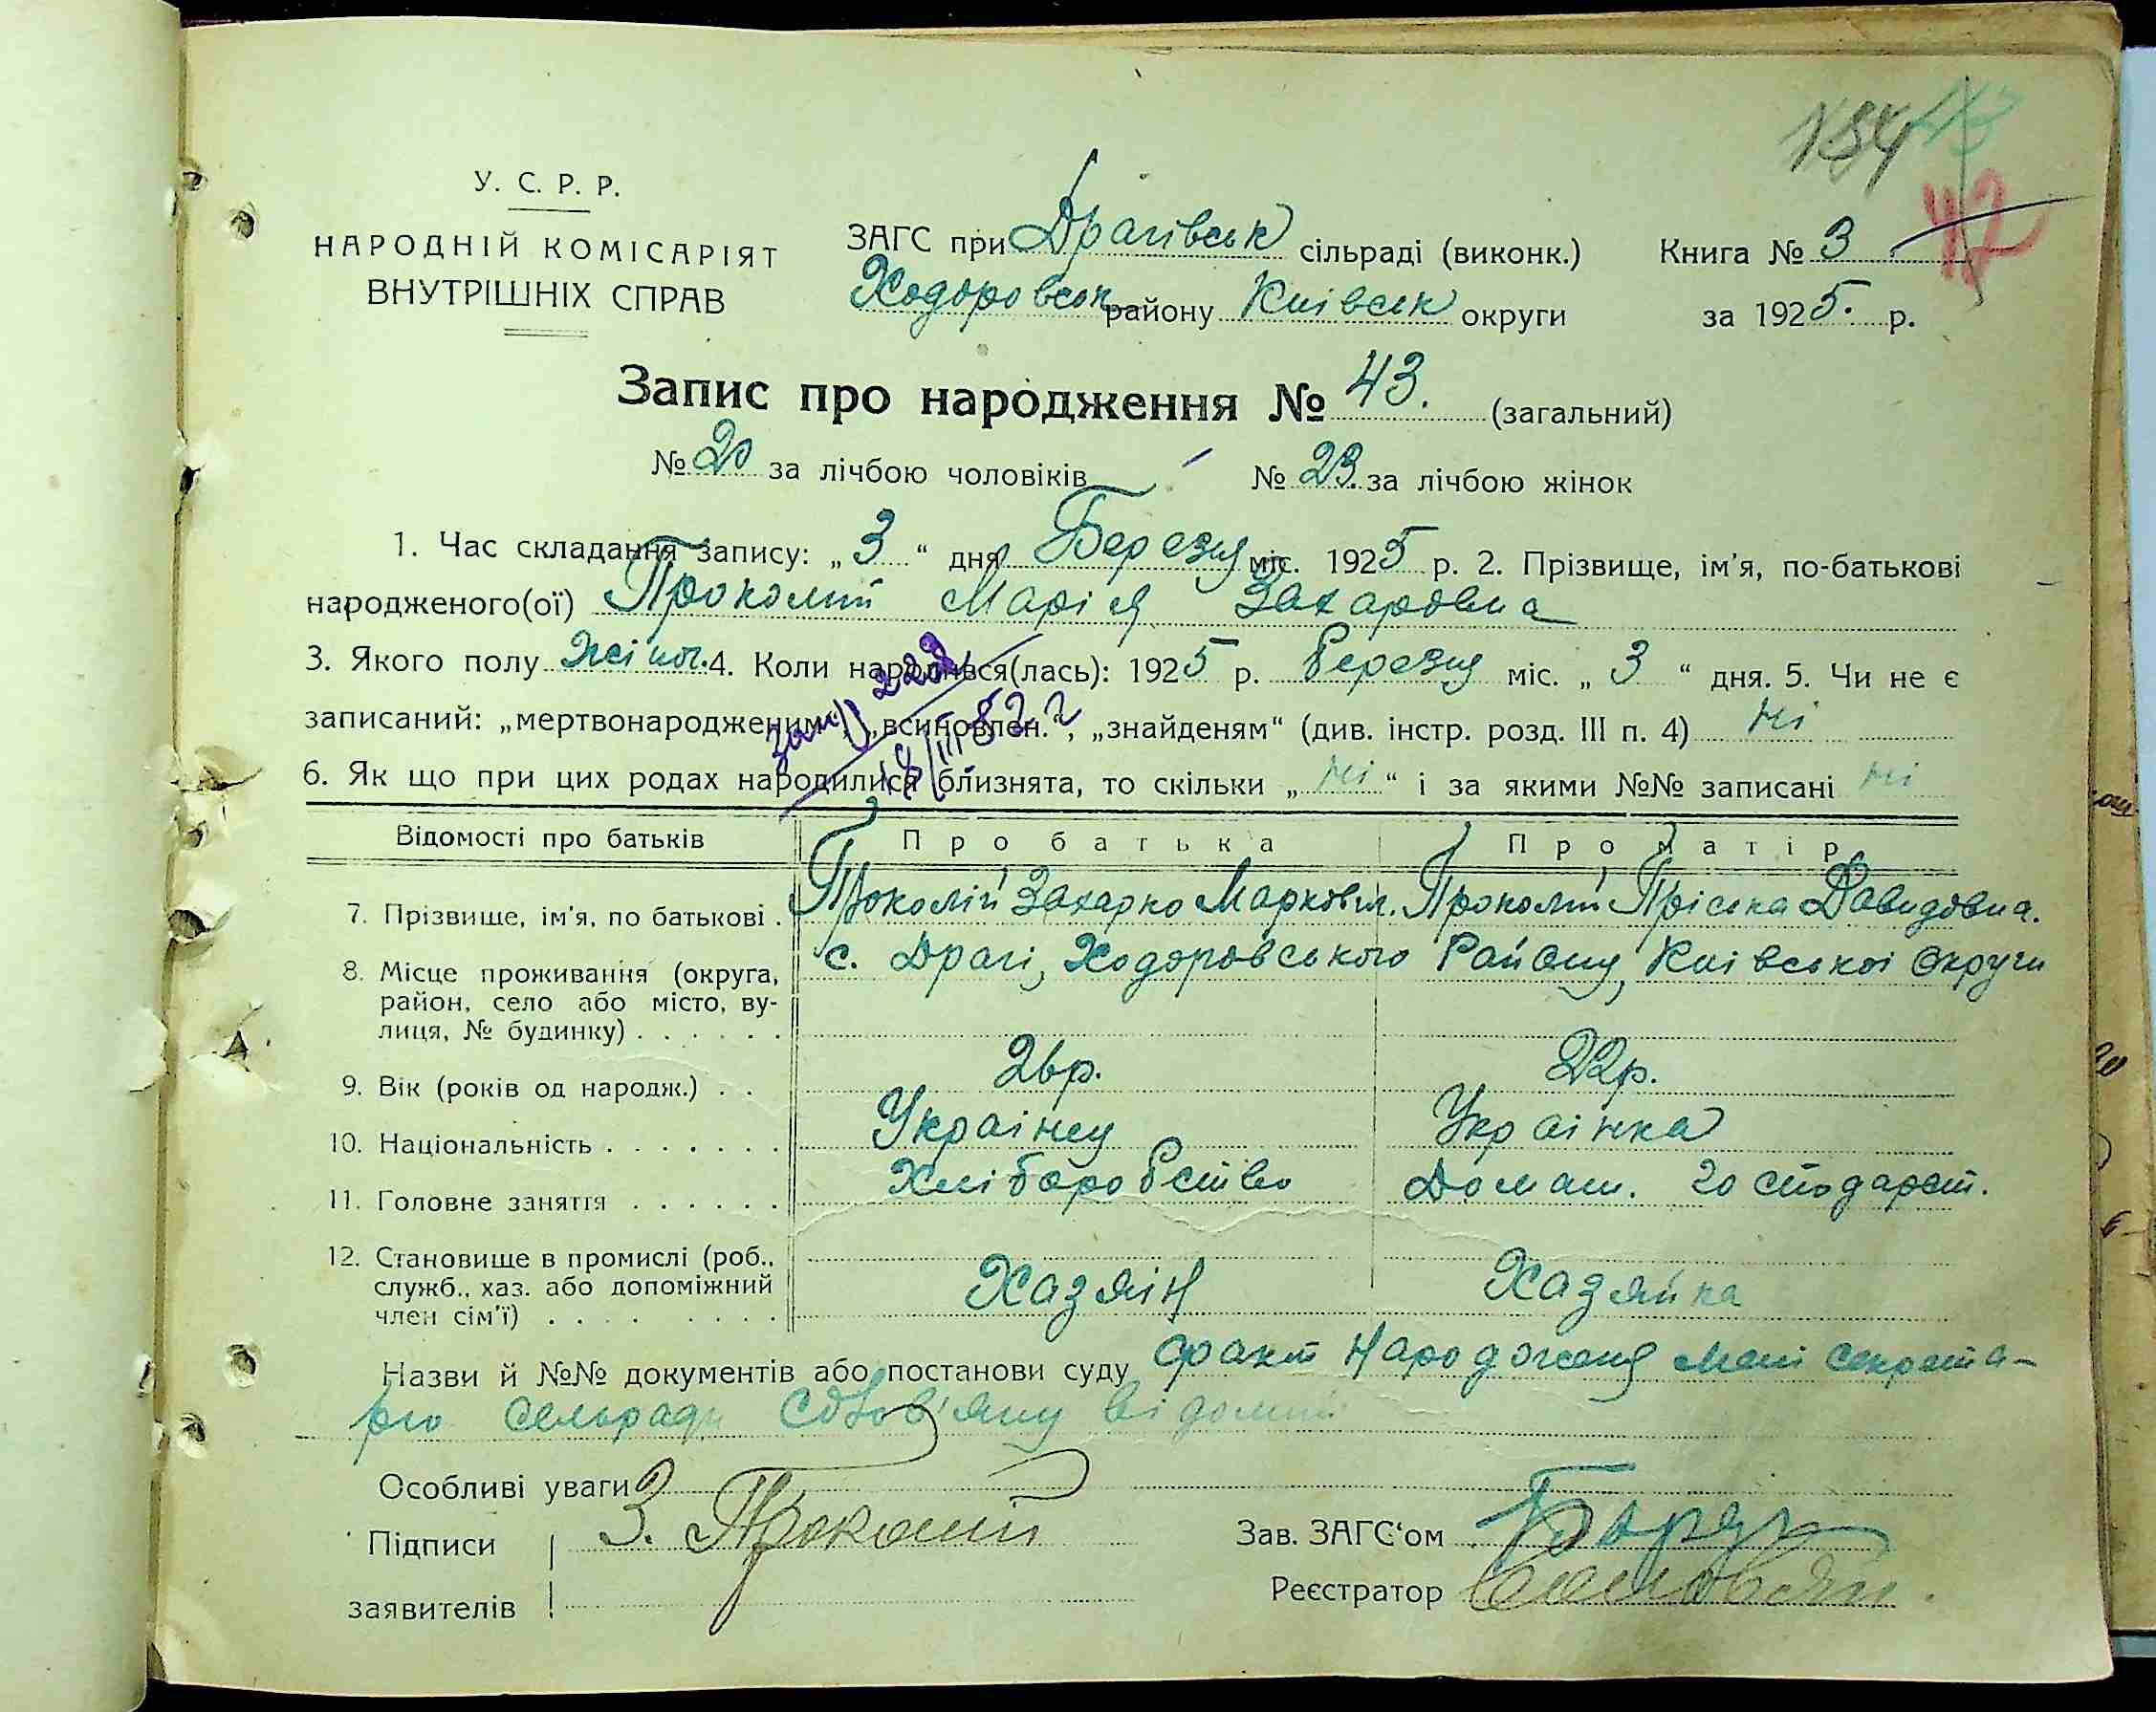 184
42
У. С. Р. Р.
НАРОДНІЙ КОМІСАРІЯТ
ВНУТРІШНІХ СПРАВ
ЗАГС при Драгівськ сільраді (виконк.) Книга № 3
Ходоровськ району Київськ округи за 1925. р.
Запис про народження № 43. (загальний)
№ 20 за лічбою чоловіків № 23. за лічбою жінок
1. Час складання запису: „ 3 “ дня Березня міс. 1925 р. 2. Прізвище, ім'я, по-батькові
народженого(ої) Прокопій Марія Захаровна
3. Якого полу Жіноч. 4. Коли народився(лась): 1925 р. березня міс. „ 3 “ дня. 5. Чи не є
записаний: „мертвонародженим“, „всиновлен.“, „знайденям“ (див. інстр. розд. III п. 4) ні
6. Як що при цих родах народилися близнята, то скільки „ ні “ і за якими №№ записані ні
Відомості про батьків Про батька Про матір
7. Прізвище, ім'я, по батькові . Прокопій Захарко Марков. Прокопій Пріська Давидовна.
8. Місце проживання (округа, с. Драгі, Ходоровського Району, Київської Округи
район, село або місто, ву-
лиця, № будинку) . . . . . .
9. Вік (років од народж.) . . 26р. 22р.
10. Національність . . . . . . . Українец Українка
11. Головне заняття . . . . . . Хліборобство Домаш. господарст.
12. Становище в промислі (роб.,
служб., хаз. або допоміжний Хазяін Хазяйка
член сім'ї) . . . . . . . .
Назви й №№ документів або постанови суду факт Народженя мені секрета-
рю сельради відомий
Особливі уваги
Підписи З. Прокопій Зав. ЗАГС'ом
заявителів Реєстратор